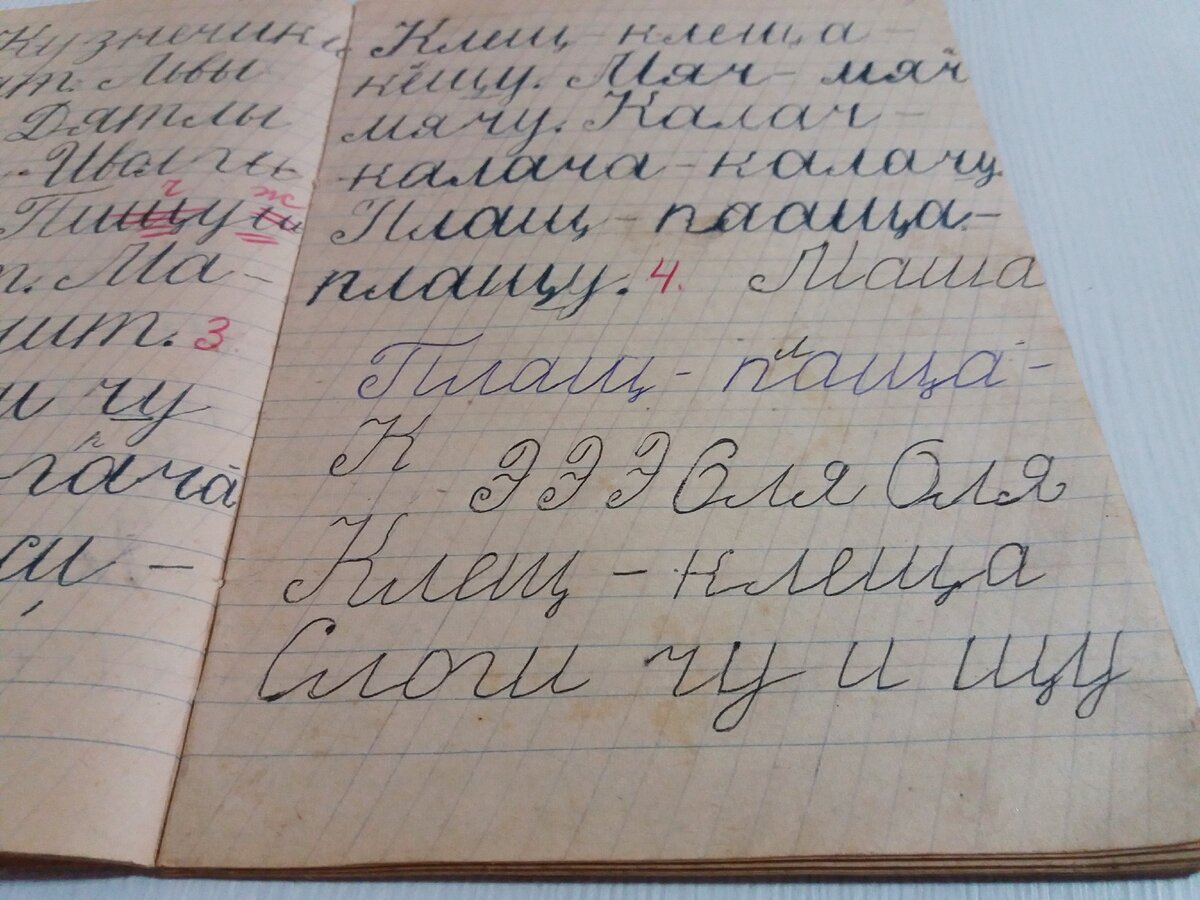 Кузнечики
ят. Львы
Дятлы
Пищу
ч ж
т. Ма-
шт. 3.
и чу
Клещ - клеща -
кещу. Мяч - мяч
мячу. Калач -
калача - калачу.
Плащ - паоща -
плащу. 4. Маша
Плащ - паща -
л
К Э Э Э Оля Оля
Клещ - клеща
Слоги чу и щу